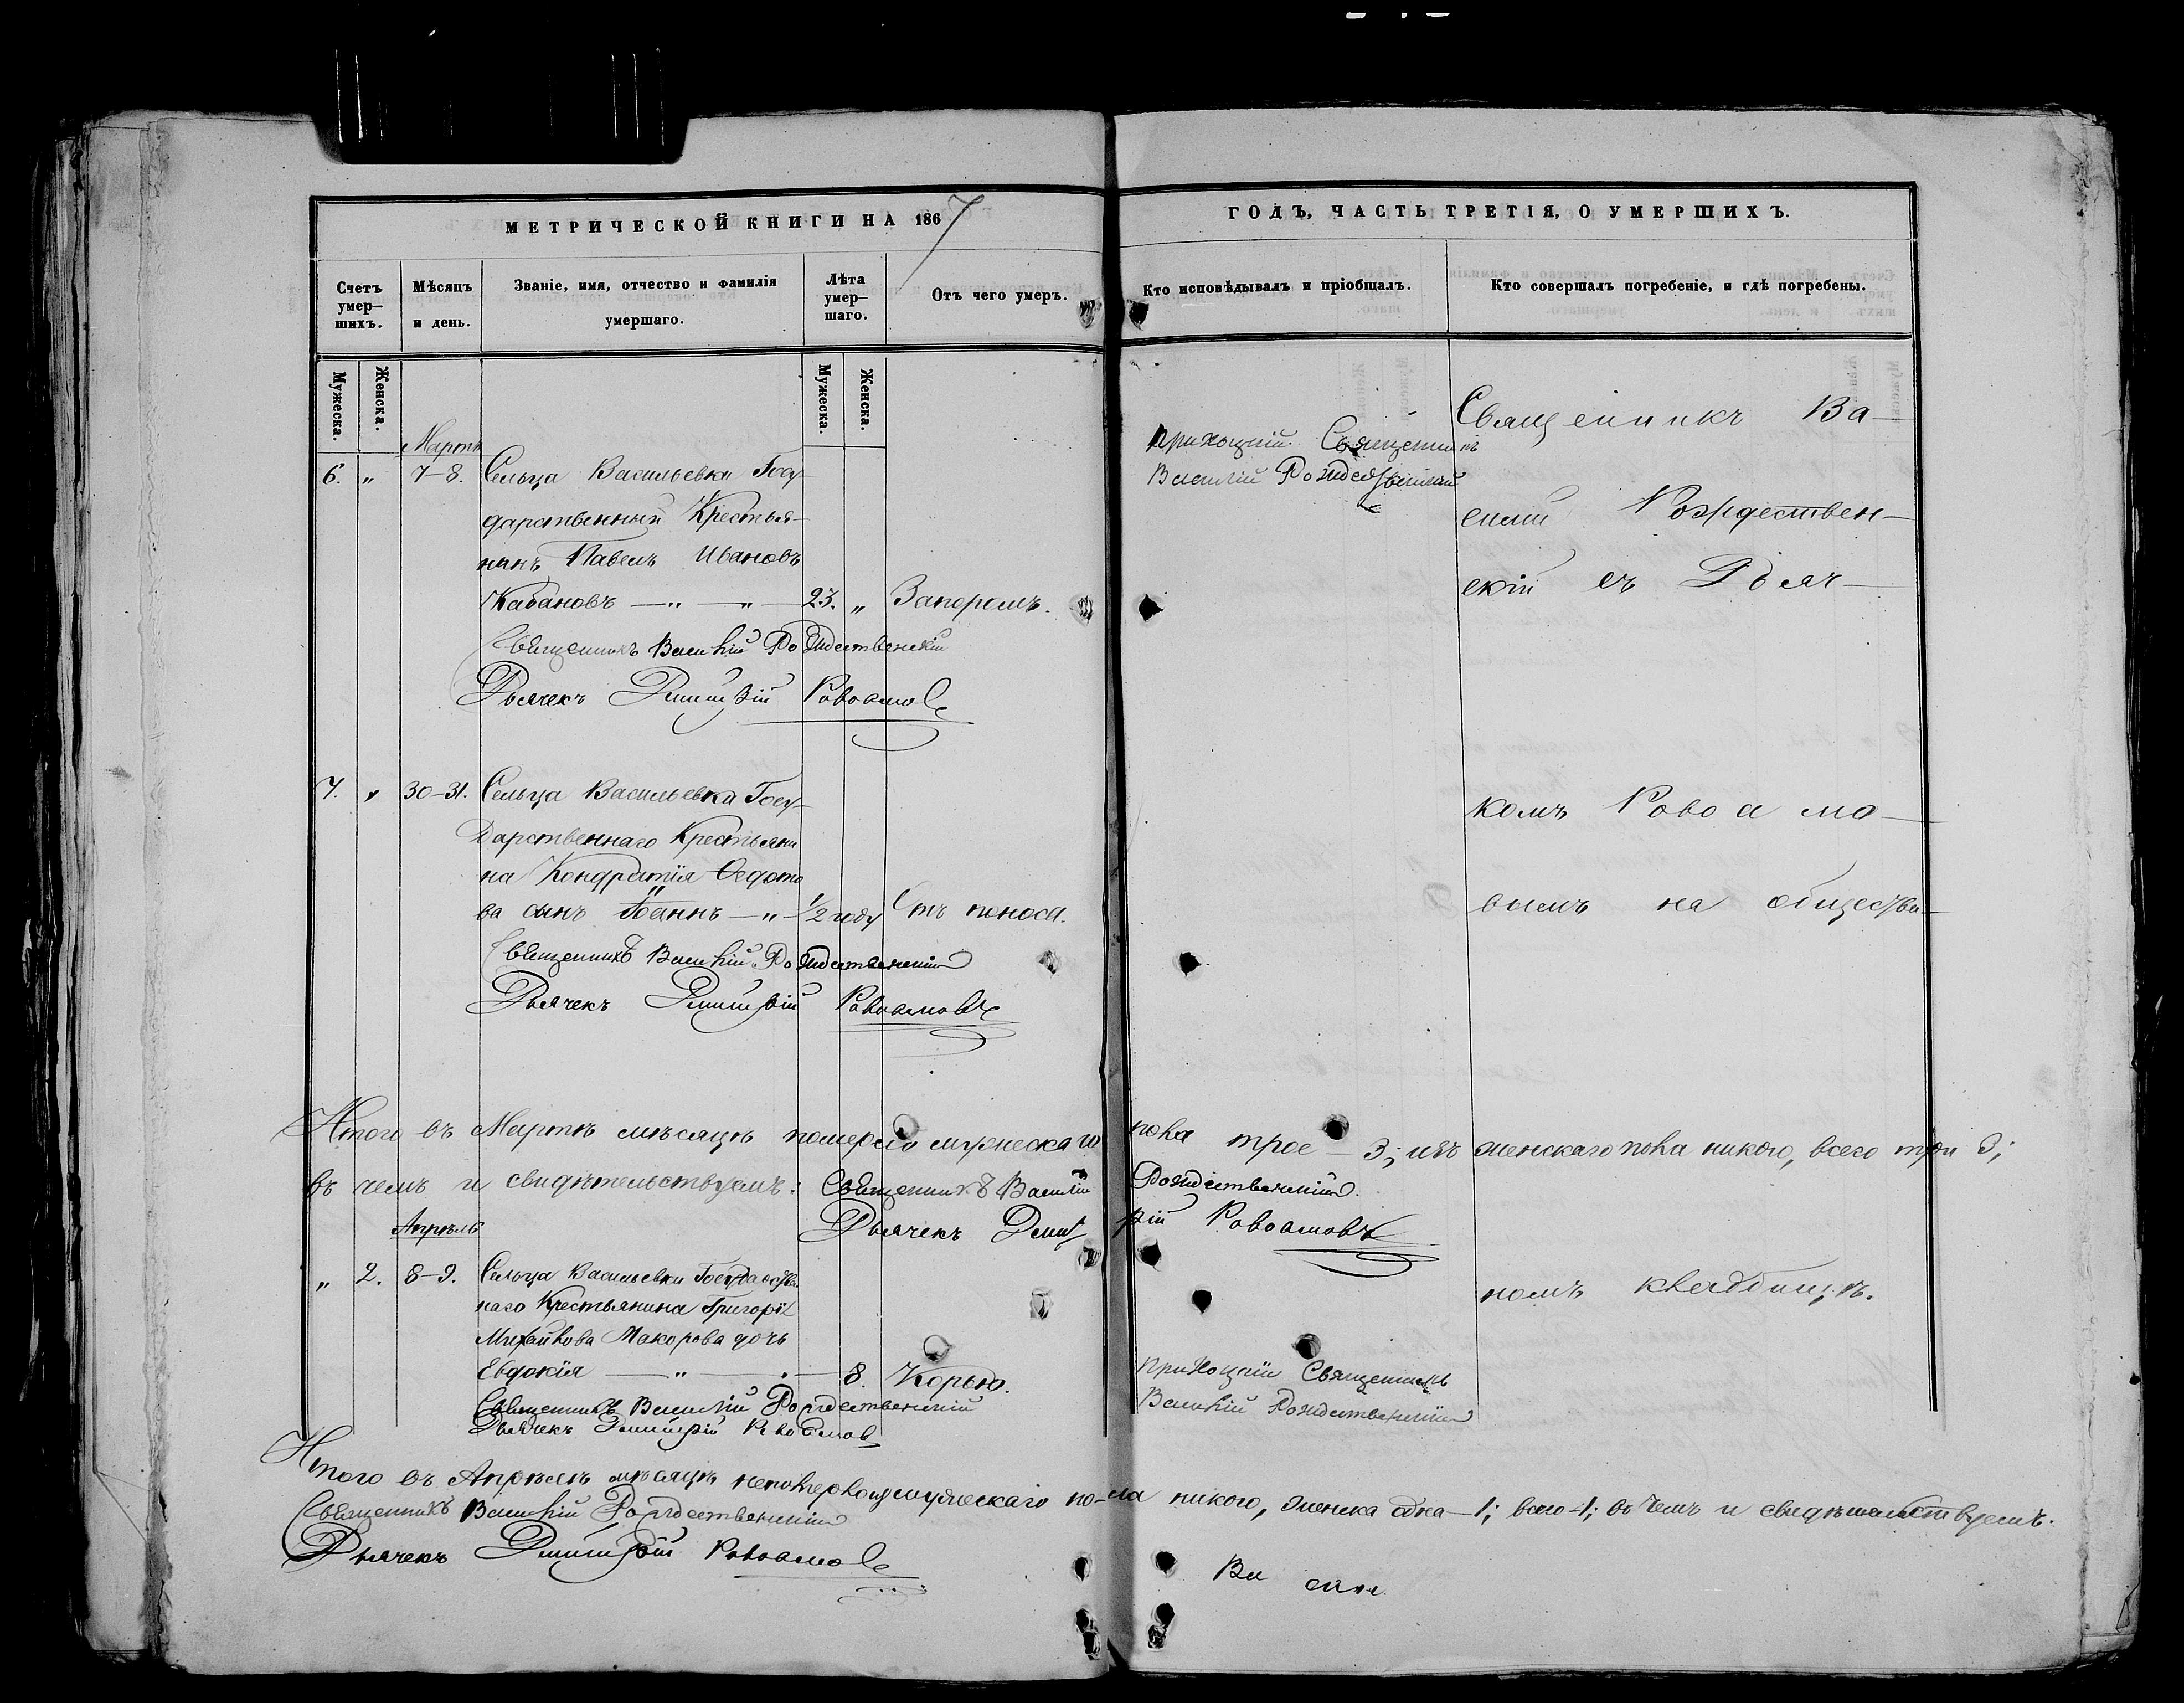 МЕТРИЧЕСКОЙ КНИГИ НА 1867
ГОДЪ, ЧАСТЬ ТРЕТІЯ, О УМЕРШИХЪ.
Счетъ умер-
шихъ.
Мѣсяцъ
и день.
Званіе, имя, отчество и фамилія
умершаго.
Лѣта
умер-
шаго.
Отъ чего умеръ.
Кто исповѣдывалъ и пріобщалъ.
Кто совершалъ погребеніе, и гдѣ погребены.
Мужеска.
Женска.
Мужеска.
Женска.
Мартъ
6. „ 7-8. Сельца Васильевки Госу-
дарственный Крестья-
нинъ Павелъ Ивановъ
Кабановъ — „ — „ — 23. „ Запоромъ.
Священникъ Василій Рождественскій
Дьячекъ Димитрій Ровоамов
Приходскій Священникъ
Василій Рождественскій
Священникъ Ва-
силій Рождествен-
скій съ Дьяч-
7. „ 30-31. Сельца Васильевки Госу-
дарственнаго Крестьяни
на Кондратія Ѳедото
ва сынъ Іоаннъ — „ — 1/2 году Отъ поноса.
Священникъ Василій Рождественскій
Дьячекъ Димитрій Ровоамовъ
комъ Ровоамо-
вымъ на обществен-
Итого въ Мартѣ мѣсяцѣ померло мужескаго пола трое — 3; изъ женскаго пола никого, всего три 3;
въ чемъ и свидѣтельствуемъ: Священникъ Василій Рождественскій.
Дьячекъ Димитрій Ровоамовъ
Апрѣль
„ 2. 8-9. Сельца Васильевки Государствен
наго Крестьянина Григорія
Михайлова Макорова дочь
Евдокія — „ — 8. Корью.
Священникъ Василій Рождественскій
Дьячекъ Димитрій Ровоамов
номъ кладбищѣ.
Приходскій Священникъ
Василій Рождественскій
Итого въ Апрѣлѣ мѣсяцѣ мужескаго по-ла никого, женска одна — 1; всего 1; въ чемъ и свидѣтельствуемъ.
Священникъ Василій Рождественскій
Дьячекъ Димитрій Ровоамов